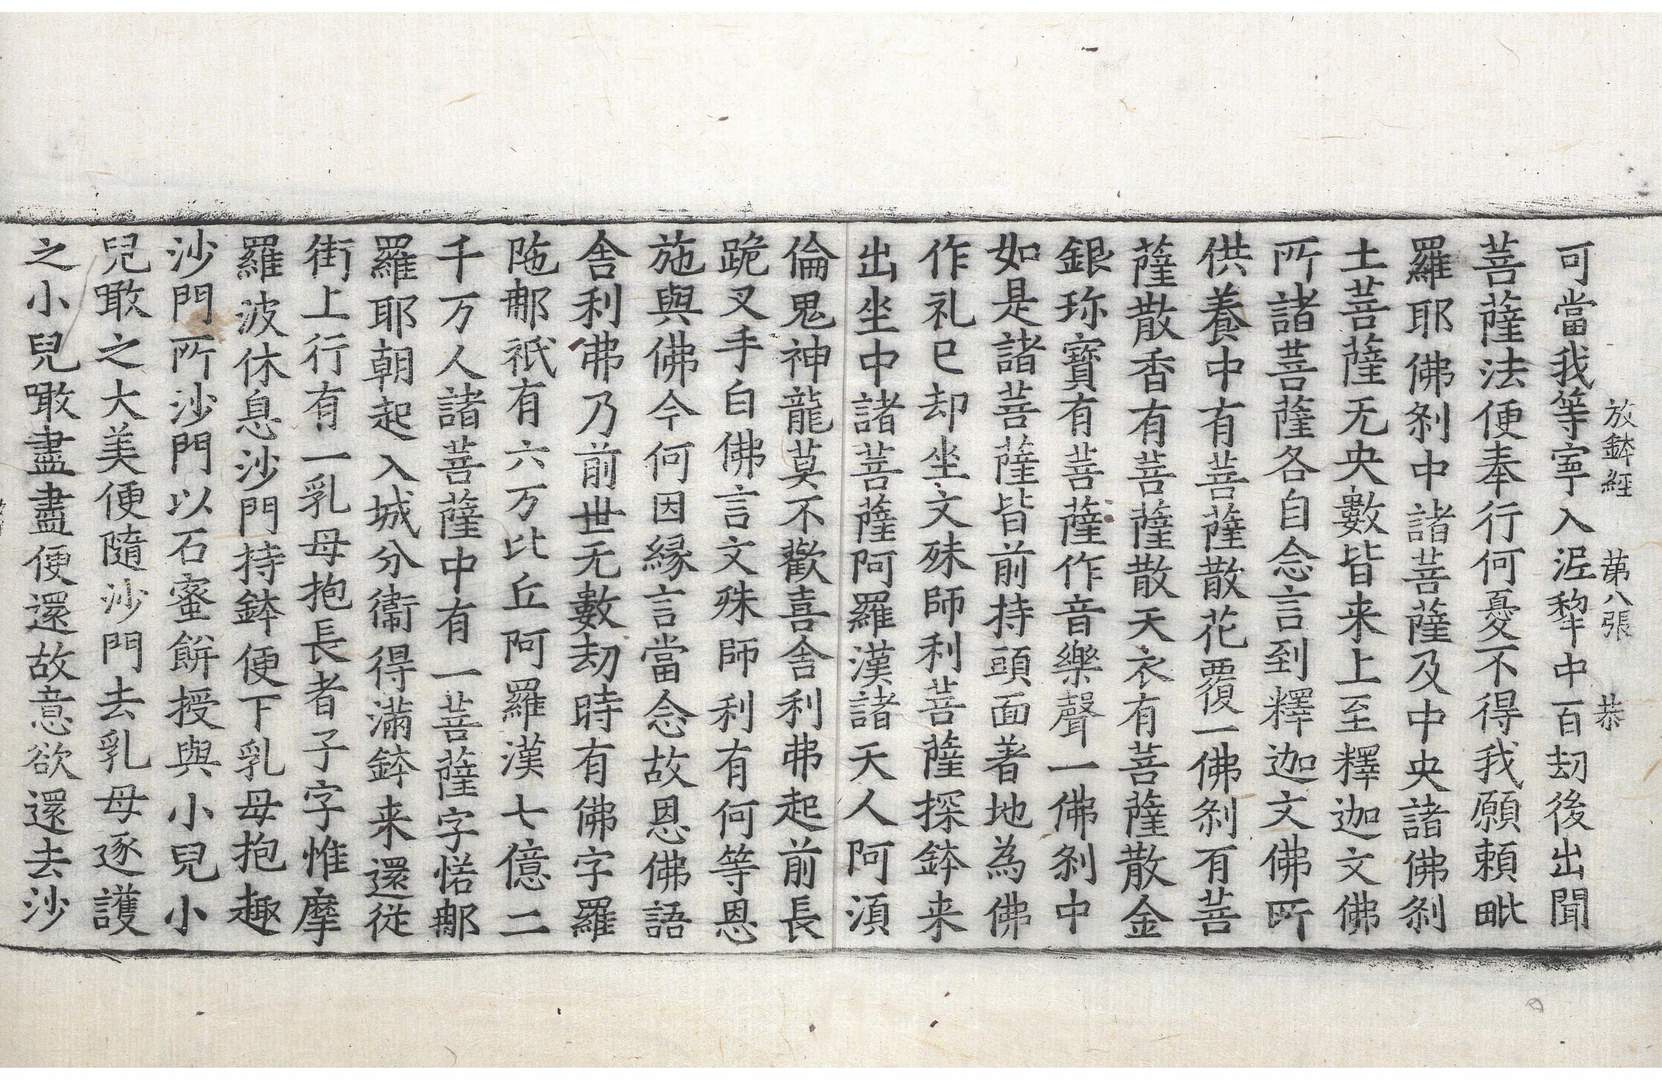 放鉢經 第八張 恭
可當我等寧入泥犁中百劫後出聞
菩薩法便奉行何憂不得我願頼毗
羅耶佛刹中諸菩薩及中央諸佛刹
土菩薩无央數皆来上至釋迦文佛
所諸菩薩各自念言到釋迦文佛所
供養中有菩薩散花覆一佛刹有菩
薩散香有菩薩散天衣有菩薩散金
銀珎寳有菩薩作音樂聲一佛刹中
如是諸菩薩皆前持頭面著地為佛
作礼已却坐文殊師利菩薩探鉢来
出坐中諸菩薩阿羅漢諸天人阿湏
倫鬼神龍莫不歡喜舎利弗起前長
跪叉手白佛言文殊師利有何等恩
施與佛今何因縁言當念故恩佛語
舎利弗乃前世无數劫時有佛字羅
陁那祇有六万比丘阿羅漢七億二
千万人諸菩薩中有一菩薩字惒那
羅耶朝起入城分衞得滿鉢来還從
街上行有一乳母抱長者子字惟摩
羅波休息沙門持鉢便下乳母抱趣
沙門所沙門以石蜜餅授與小兒小
兒噉之大美便隨沙門去乳母逐護
之小兒噉盡盡便還故意欲還去沙